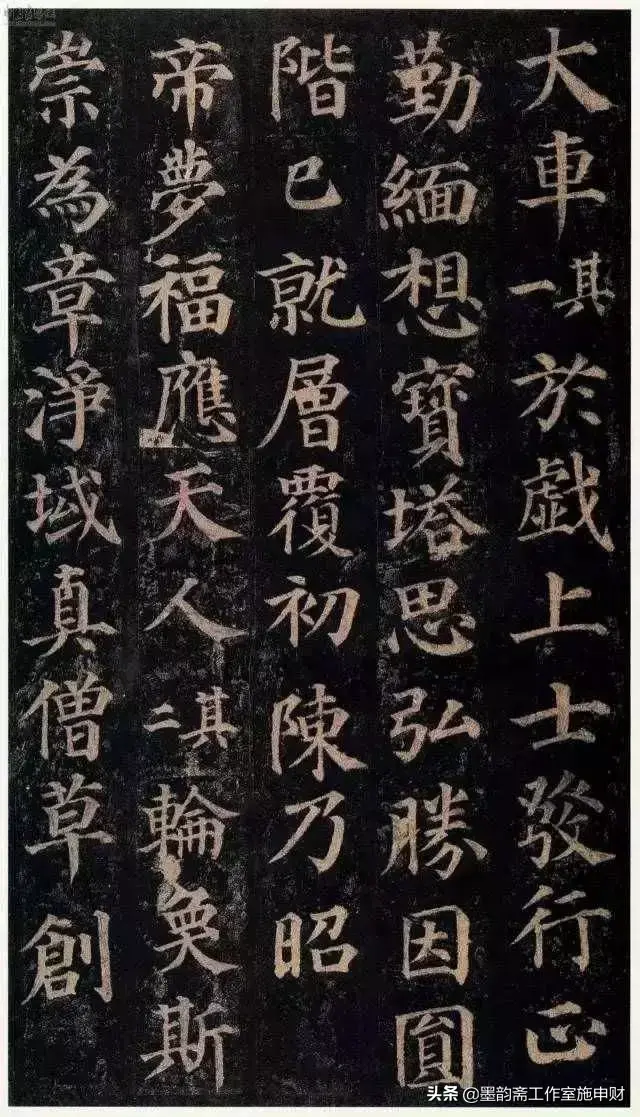 大車其一於戯上士發行正
勤緬想寶塔思弘勝因圓
階已就層覆初陳乃昭
帝夢福應天人其二輪奐斯
崇為章淨域真僧草創
头条 @墨韵斋工作室施申财